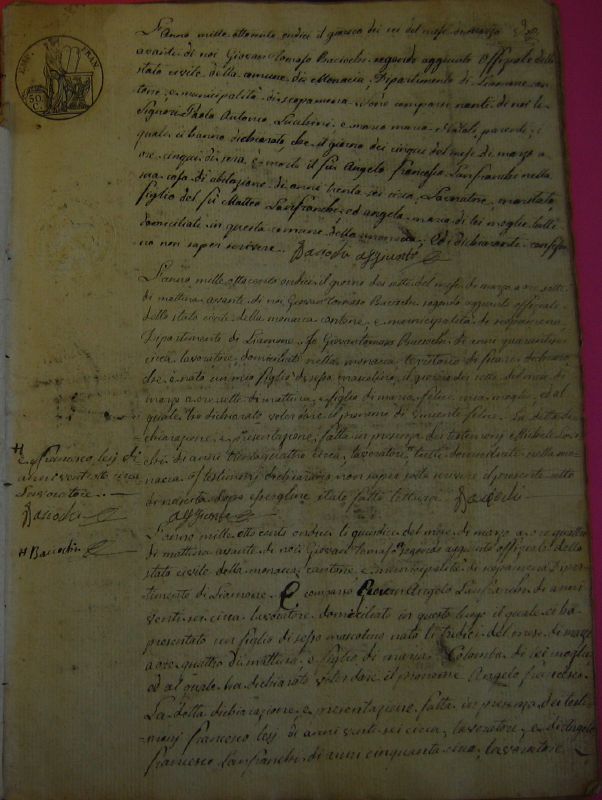 EMP. FRAN.
50. C.
L'anno mille ottocento undici il giorno dei sei del mese di marzo
avanti di noi Giovan Tomaso Baciochi segondo aggiunto offiziale dello
stato civile della comune di Monacia, Dipartimento di Liamone can-
tone, e municipalità di scopamena sono comparse nanti di noi li
Signori Paolo Antonio Lucchini, e marco maria Natali, parenti, i
quali ci hanno dichiarato, che il giorno dei cinque del mese di marzo a
ore cinque di sera, è morto il fu Angelo Francesco Lanfranchi nella
sua casa di abitazione di anni trenta sei circa, Lavoratore, maritato,
figlio del fu Matteo Lanfranchi ed angela maria di lei moglie tutti
domiciliati in questa comune della monacia. Ed i dichiaranti
no non saper scrivere. Baciochi aggiunto
L'anno mille ottocento undici il giorno dei sette del mese di marzo a ore sette
di mattina avanti di noi Giovan Tomaso Baciochi segondo aggiunto offiziale
dello stato civile della monacia cantone, e municipalità di scopamena,
Dipartimento di Liamone. Io Giovan Tomaso Baciochi di anni quarantasei
circa, lavoratore, domiciliato nella monacia territorio di ficari dichiaro,
che è nato un mio figlio di sesso mascolino, il giorno dei sette del mese di
marzo a ore sette di mattina, e figlio di maria felice, mia moglie, ed al
quale, ho dichiarato voler dare il pronome di Vincente felice. La detta di-
chiarazione, e presentazione, fatta in presenza dei testimonj Michele
di anni trenta quattro circa, lavoratore tutti domiciliati nella mo-
nacia i testimonj dichiarano non saper scrivere il presente atto
doppo essergline stato fatto lettura Baciochi
aggiunto
H e francesco leij di
anni vent sei circa
Lavoratore
Baciochi
H Baciochi
L'anno mille otto cento undici li quindici del mese di marzo a ore quattro
di mattina avanti di noi Giovan Tomaso segondo aggiunto offiziale dello
stato civile della monacia cantone, e municipalità di scopamena Dipar-
timento di Liamone. È comparso Angelo Lanfranchi di anni
venti sei circa lavoratore domiciliato in questo luogo il quale ci ha
presentato un figlio di sesso mascolino nato li tredici del mese di marzo
a ore quattro di mattina, e figlio di maria Colomba di lei moglie
ed al quale ha dichiarato voler dare il pronome Angelo francesco.
La detta dichiarazione, e presentazione, fatta in presenza dei testi-
monj francesco leij di anni venti sei circa, lavoratore, e di Angelo
francesco Lanfranchi di anni cinquanta circa, lavoratore